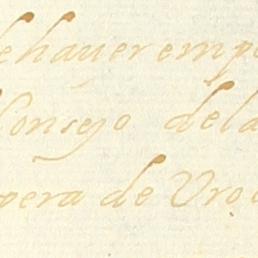 dehaverempe
Consejo dela
pera de Vro